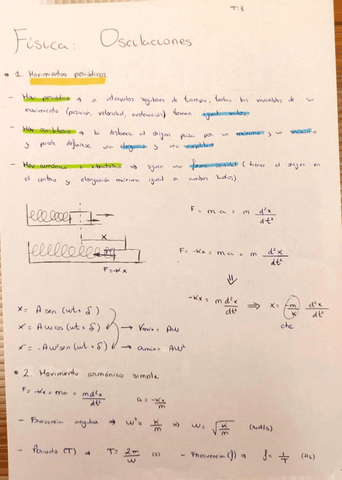 T:3
Física: Oscilaciones
• 1. Movimientos periódicos
- Mov. periódico → a intervalos regulares de tiempo, todas las variables de su
movimiento (posición, velocidad, aceleración) toman
- Mov. oscilatorio → la distancia al origen pasa por un máximo y un mínimo
y puede definirse una elongación y una amplitud
- Mov. armónico o vibratorio → siguen una forma senoidal (tienen el origen en
el centro y elongación máxima igual a ambos lados)
F = m a = m d²x/dt²
x
m
F = -Kx
F = -Kx = ma = m d²x/dt²
-Kx = m d²x/dt² ⇒ x = -m/K d²x/dt²
cte
x = A sen (wt + δ)
x' = A w cos (wt + δ) → Vmáx = Aw
x'' = -A w² sen (wt + δ) → amáx = Aw²
• 2. Movimiento armónico simple
F = -Kx = ma = m d²x/dt² a = -Kx/m
- Frecuencia angular → w² = K/m ⇒ w = √K/m (rad/s)
- Periodo (T) → T = 2π/w (s) - Frecuencia (f) → f = 1/T (Hz)